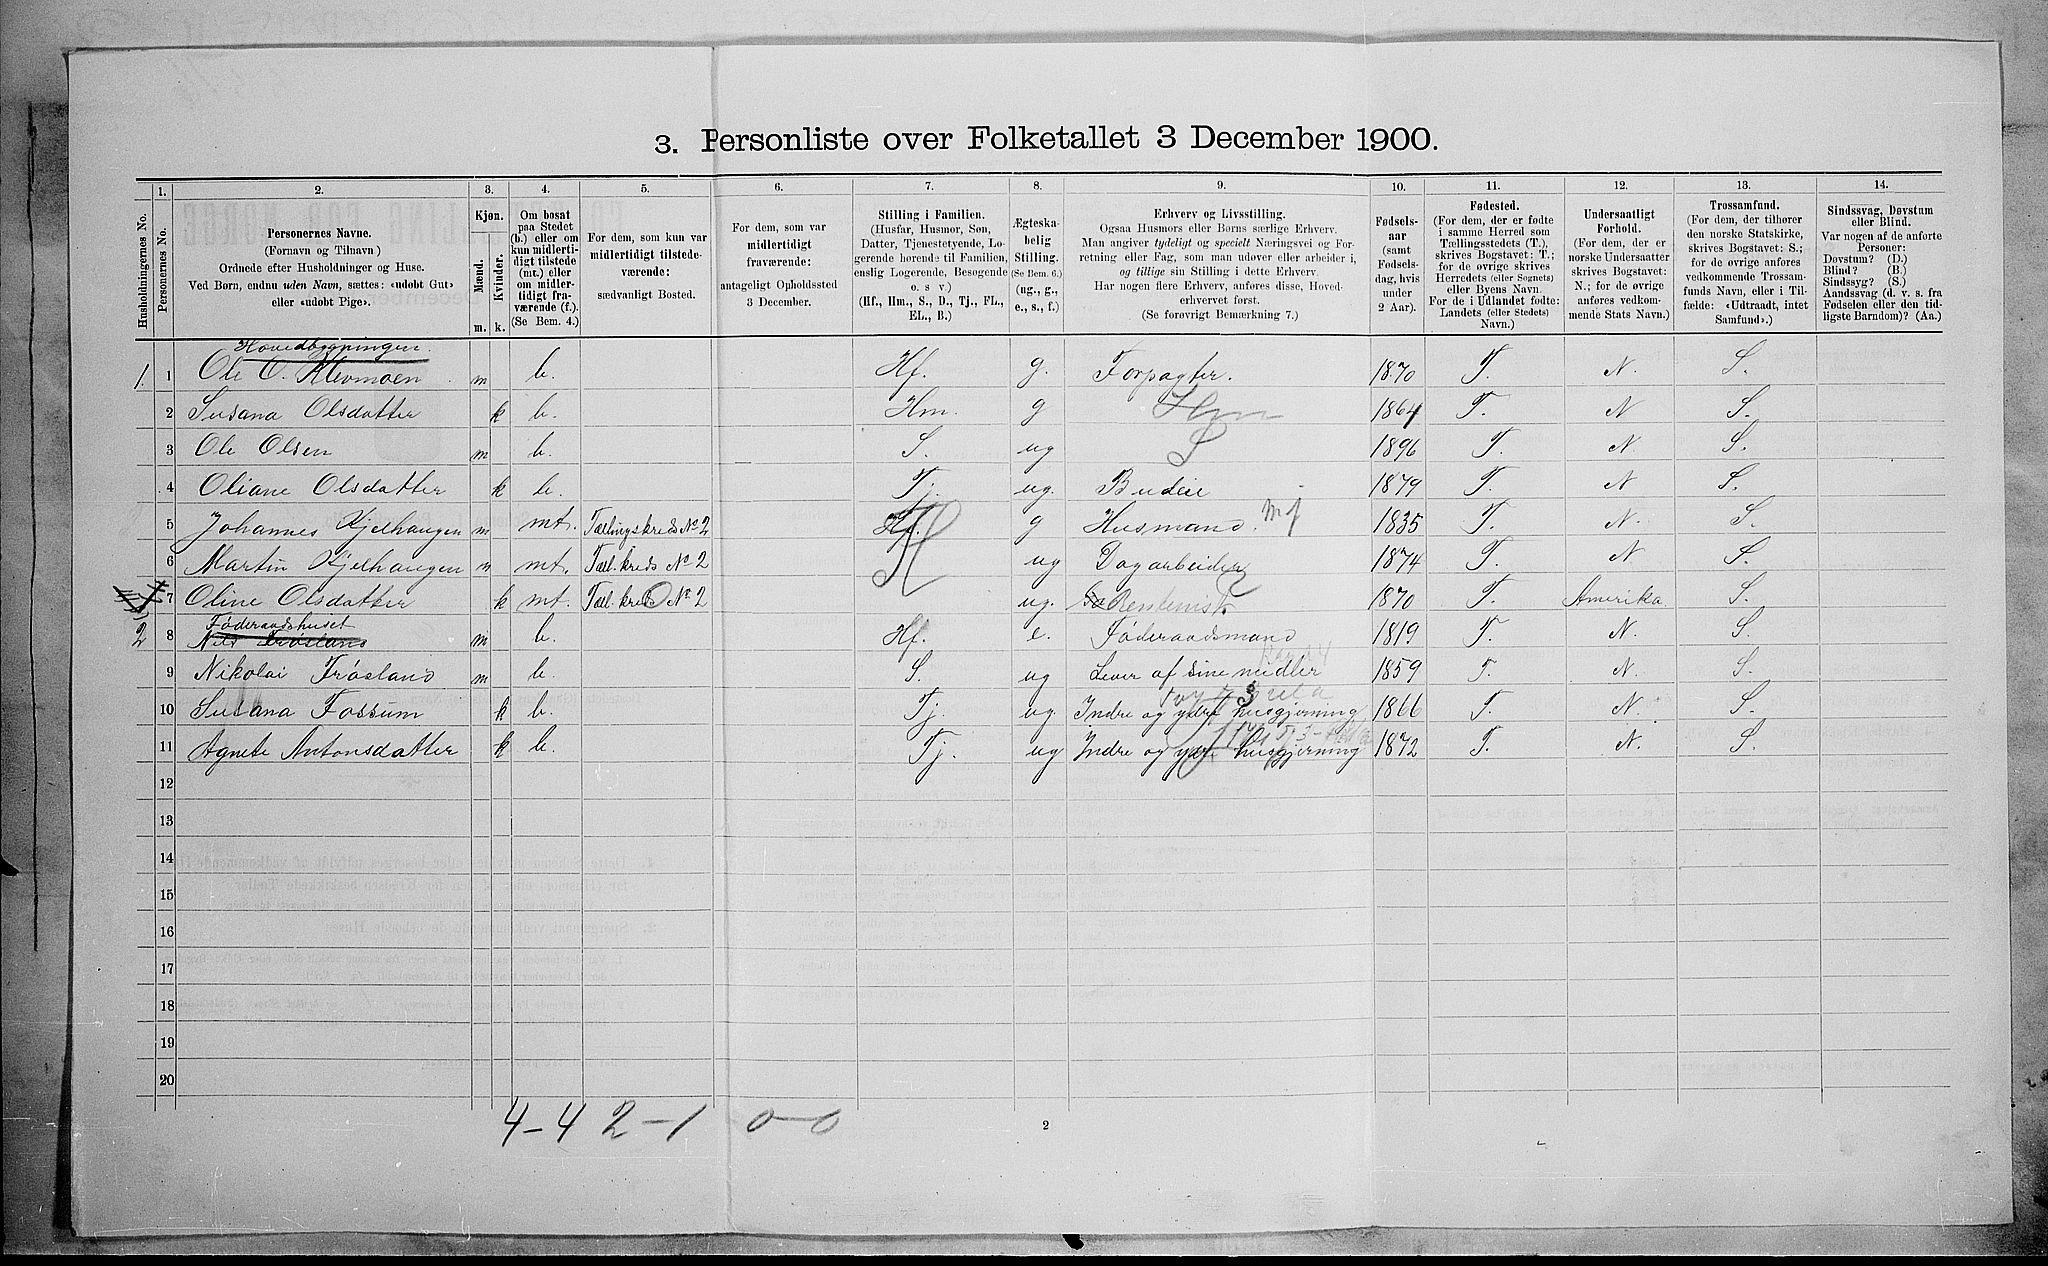 3. Personliste over Folketallet 3 December 1900.
1. 2. 3. 4. 5. 6. 7. 8. 9. 10. 11. 12. 13. 14.
Husholdningernes No.
Personernes No.
Personernes Navne.
(Fornavn og Tilnavn)
Ordnede efter Husholdninger og Huse.
Ved Børn, endnu uden Navn, sættes: «udøbt Gut»
eller «udøbt Pige».
Kjøn.
Mænd.
Kvinder.
m. k.
Om bosat
paa Stedet
(b.) eller om
kun midlerti-
digt tilstede
(mt.) eller
om midler-
tidigt fra-
værende (f.).
(Se Bem. 4.)
For dem, som kun var
midlertidigt tilstede-
værende:
sædvanligt Bosted.
For dem, som var
midlertidigt
fraværende:
antageligt Opholdssted
3 December.
Stilling i Familien.
(Husfar, Husmor, Søn,
Datter, Tjenestetyende, Lo-
gerende hørende til Familien,
enslig Logerende, Besøgende
o. s v.)
(Hf., Hm., S., D., Tj., FL.,
EL., B.)
Ægteska-
belig
Stilling.
(Se Bem. 6.)
(ug., g.,
e., s., f.)
Erhverv og Livsstilling.
Ogsaa Husmors eller Børns særlige Erhverv.
Man angiver tydeligt og specielt Næringsvei og For-
retning eller Fag, som man udøver eller arbeider i,
og tillige sin Stilling i dette Erhverv.
Har nogen flere Erhverv, anføres disse, Hoved-
erhvervet først.
(Se forøvrigt Bemærkning 7.)
Fødsels-
aar
(samt
Fødsels-
dag, hvis
under
2 Aar).
Fødested.
(For dem, der er fødte
i samme Herred som
Tællingsstedets (T.),
skrives Bogstavet: T.;
for de øvrige skrives
Herredets (eller Sognets)
eller Byens Navn.
For de i Udlandet fødte:
Landets (eller Stedets)
Navn.)
Undersaatligt
Forhold.
(For dem, der er
norske Undersaatter
skrives Bogstavet:
N.; for de øvrige
anføres vedkom-
mende Stats Navn.)
Trossamfund.
(For dem, der tilhører
den norske Statskirke,
skrives Bogstavet: S.;
for de øvrige anføres
vedkommende Trossam-
funds Navn, eller i Til-
fælde: «Udtraadt, intet
Samfund».)
Sindssvag, Døvstum
eller Blind.
Var nogen af de anførte
Personer:
Døvstum? (D.)
Blind? (B.)
Sindssyg? (S.)
Aandssvag (d. v. s. fra
Fødselen eller den tid-
ligste Barndom)? (Aa.)
Hovedbygningen
1. 1 Ole O. Klevmoen m b. Hf. g. Forpagter. 1870 T. N. S.
2 Susana Olsdatter k b. Hm. g Hm 1864 T. N S.
3 Ole Olsen m b. S. ug S 1896 T. N. S.
4 Oliane Olsdatter k b. Tj. ug. Budeie 1879 T. N S.
5 Johannes Kjelhaugen m mt. Tællingskreds No 2 Hf. g Husmand. 1835 T. N. S.
6 Martin Kjelhaugen m mt. Tæl.kreds No 2 ug Dagarbeider 1874 T. N S.
7 Oline Olsdatter k mt. Tæl.kreds No 2 ug. 1870 T. Amerika S.
Føderaadshuset
2 8 Nils Trøsland m b. Hf. e. Føderaadsmand 1819 T. N. S.
9 Nikolai Trøsland m b. S. ug Lever af sine midler 1859 T. N. S.
10 Susana Fossum k b. Tj. ug Indre og ydre husgjerning 1866 T. N. S.
11 Agnete Antonsdatter k b. Tj. ug Indre og ydre husgjerning 1872 T. N. S.
12
13
14
15
16
17
18
19
20
4-4 2-1 0-0
2